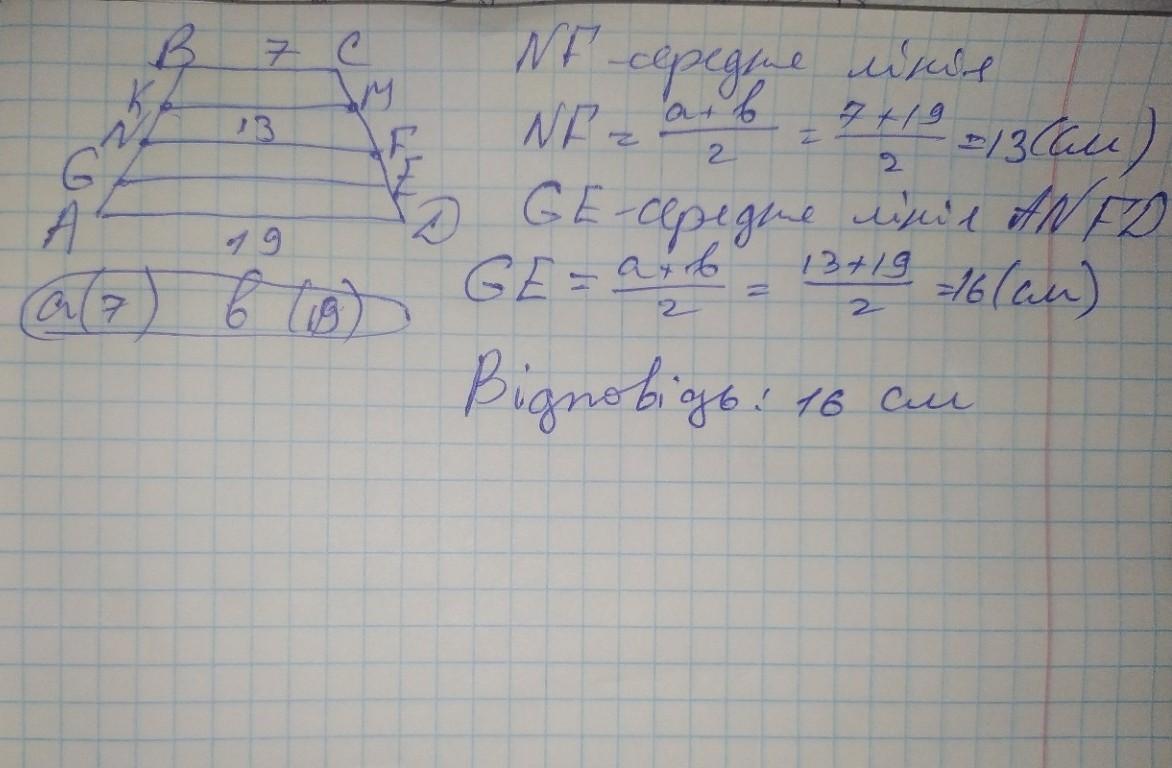 B 7 C
K M
N 13 F
G E
A 19 D
a(7) b (19)
NF - середня лінія
NF = a+b/2 = 7+19/2 = 13(см)
GE - середня лінія ANFD
GE = a+b/2 = 13+19/2 = 16(см)
Відповідь: 16 см